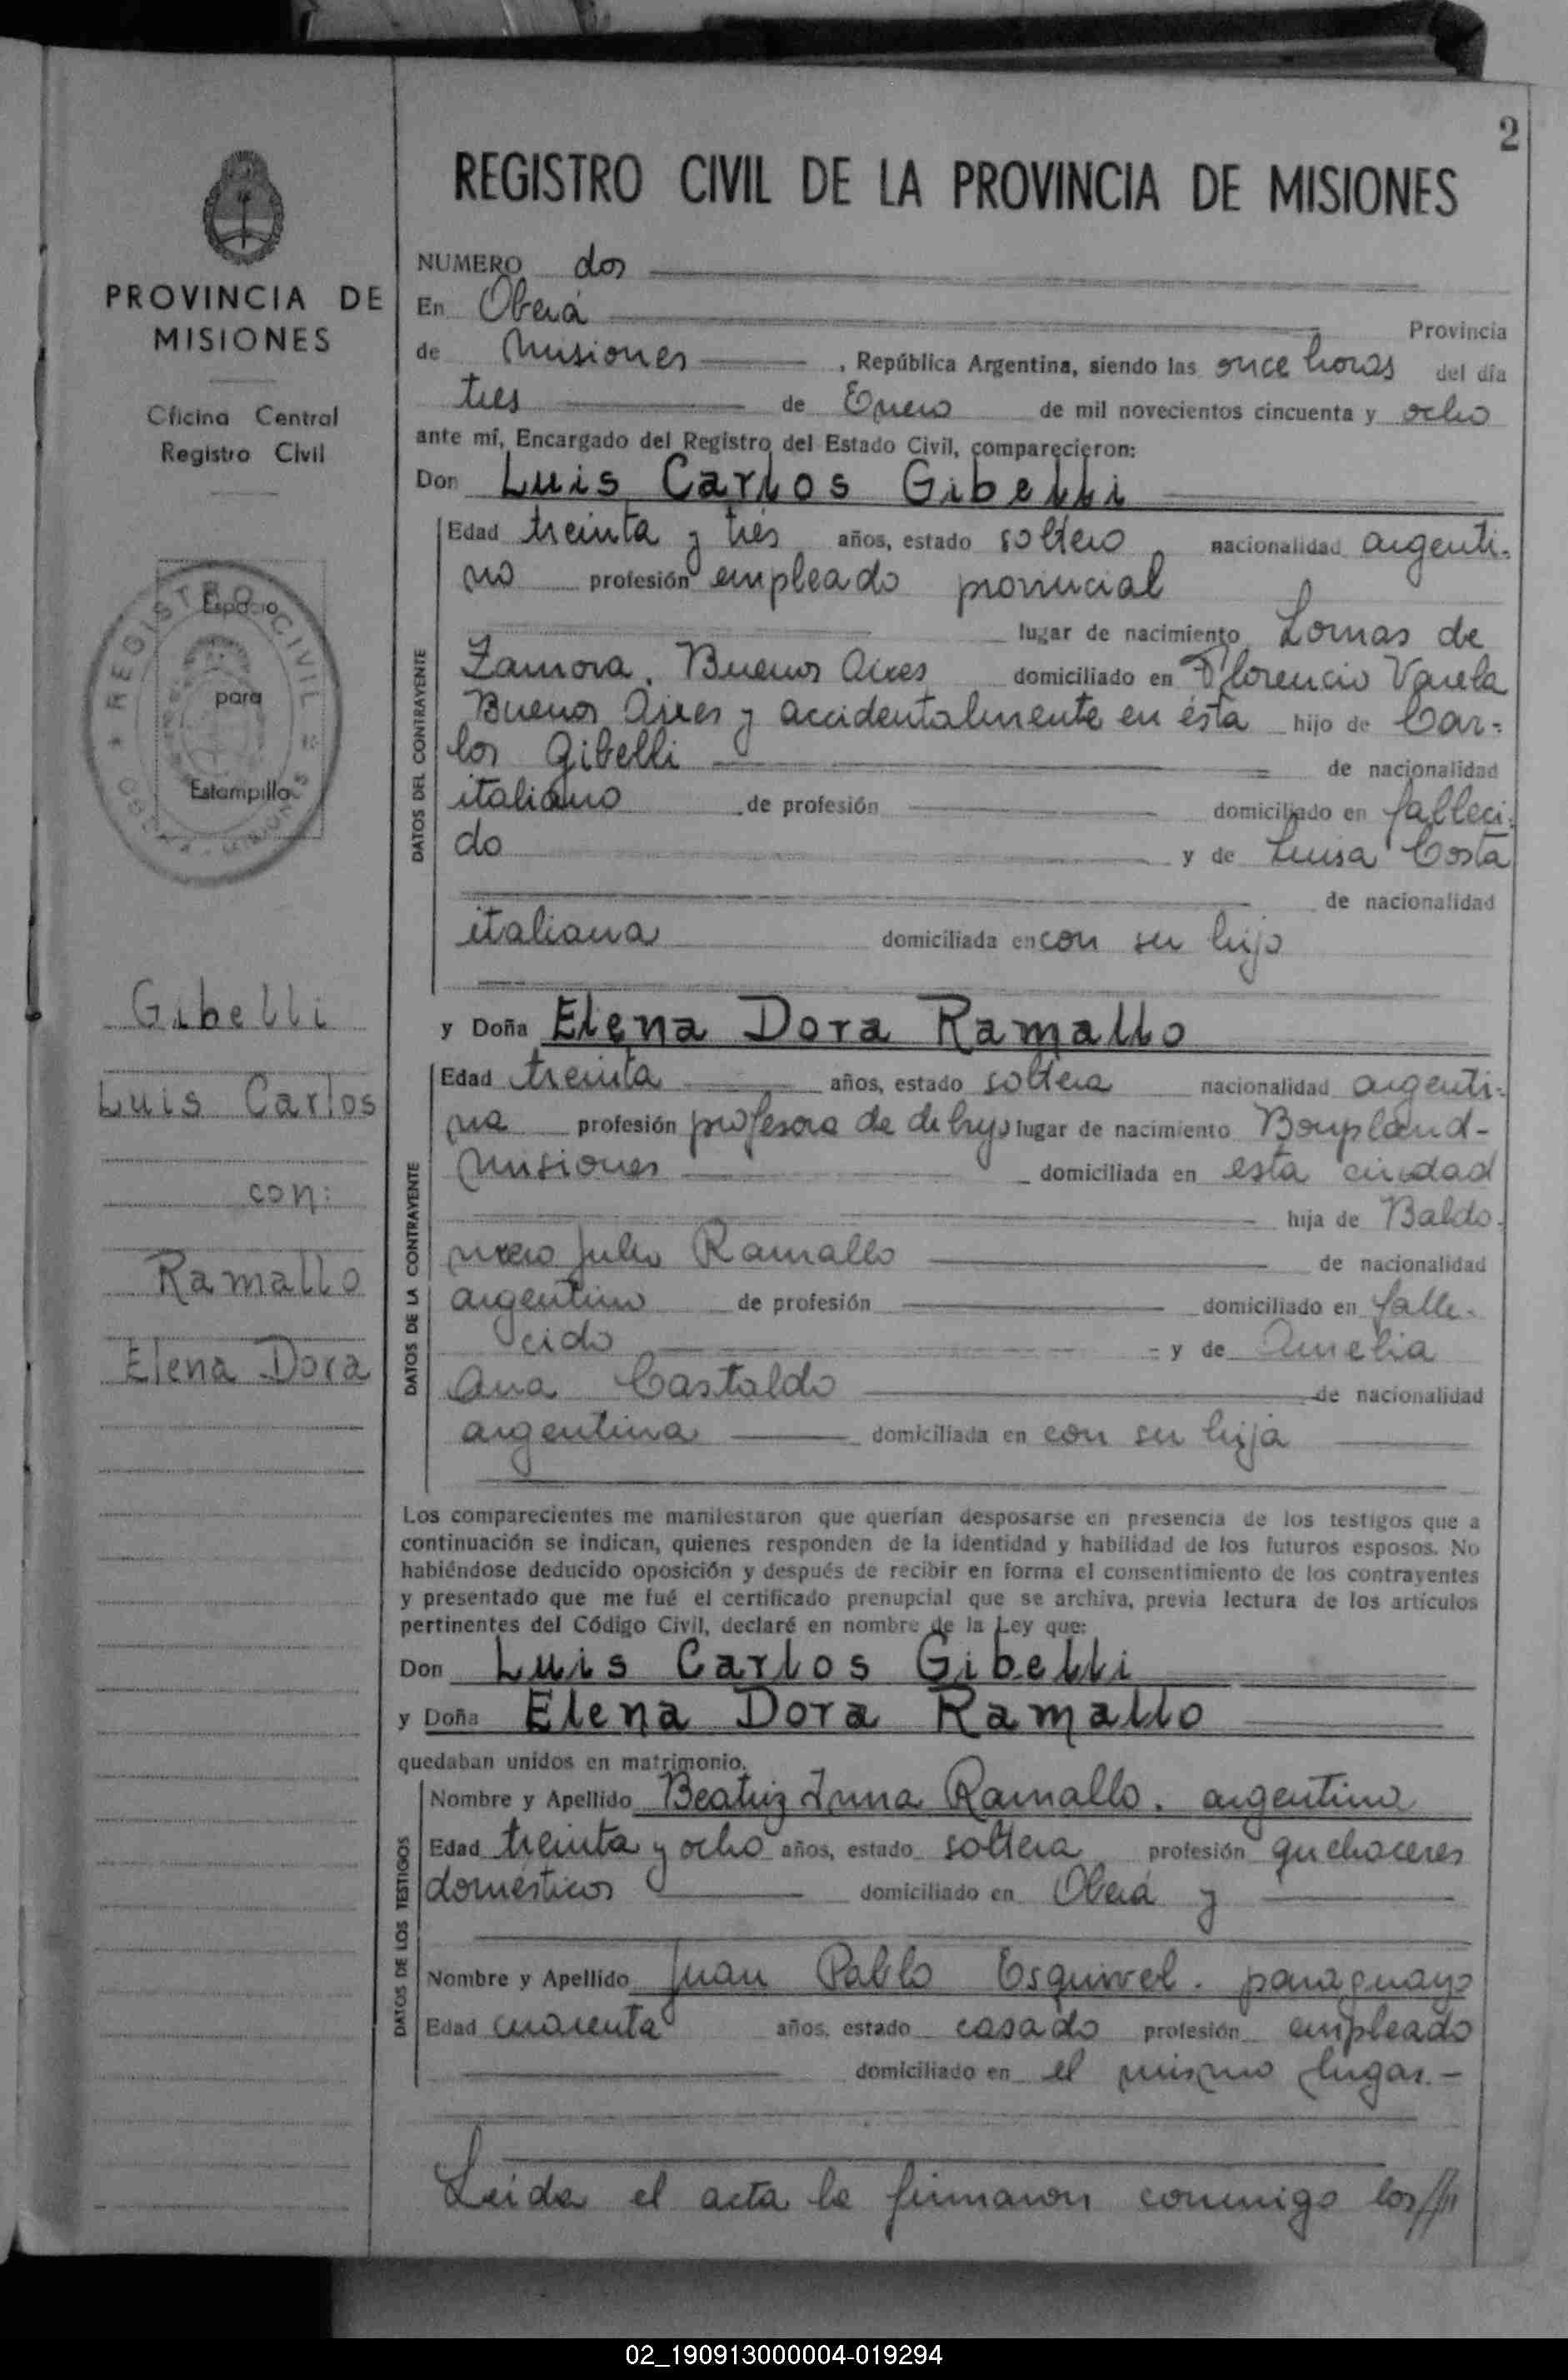 2
REGISTRO CIVIL DE LA PROVINCIA DE MISIONES
PROVINCIA DE
MISIONES
Oficina Central
Registro Civil
REGISTRO CIVIL
Espacio
para
Estampilla
Gibelli
Luis Carlos
con:
Ramallo
Elena Dora
NUMERO dos
En Oberá Provincia
de Misiones, República Argentina, siendo las once horas del día
tres de Enero de mil novecientos cincuenta y ocho
ante mí, Encargado del Registro del Estado Civil, comparecieron:
Don Luis Carlos Gibelli
DATOS DEL CONTRAYENTE
Edad treinta y tres años, estado soltero, nacionalidad argenti-
no profesión empleado provincial
lugar de nacimiento Lomas de
Zamora, Buenos Aires domiciliado en Florencio Varela
Buenos Aires y accidentalmente en ésta hijo de Car-
los Gibelli de nacionalidad
italiano de profesión domiciliado en falleci-
do y de Luisa Costa
de nacionalidad
italiana domiciliada en con su hijo
y Doña Elena Dora Ramallo
DATOS DE LA CONTRAYENTE
Edad treinta años, estado soltera nacionalidad argenti-
na profesión profesora de dibujo lugar de nacimiento Bonpland-
Misiones domiciliada en esta ciudad
hija de Baldo-
mero Julio Ramallo de nacionalidad
argentino de profesión domiciliado en falle-
cido y de Amelia
Ana Castaldo de nacionalidad
argentina domiciliada en con su hija
Los comparecientes me manifestaron que querían desposarse en presencia de los testigos que a
continuación se indican, quienes responden de la identidad y habilidad de los futuros esposos. No
habiéndose deducido oposición y después de recibir en forma el consentimiento de los contrayentes
y presentado que me fué el certificado prenupcial que se archiva, previa lectura de los artículos
pertinentes del Código Civil, declaré en nombre de la Ley que:
Don Luis Carlos Gibelli
y Doña Elena Dora Ramallo
quedaban unidos en matrimonio.
DATOS DE LOS TESTIGOS
Nombre y Apellido Beatriz Ramallo. argentina
Edad treinta y ocho años, estado soltera profesión quehaceres
domésticos domiciliado en Oberá y
Nombre y Apellido Juan Pablo Esquivel. paraguayo
Edad cuarenta años, estado casado profesión empleado
domiciliado en el mismo lugar.-
Leida el acta la firmaron conmigo los//
02_190913000004-019294